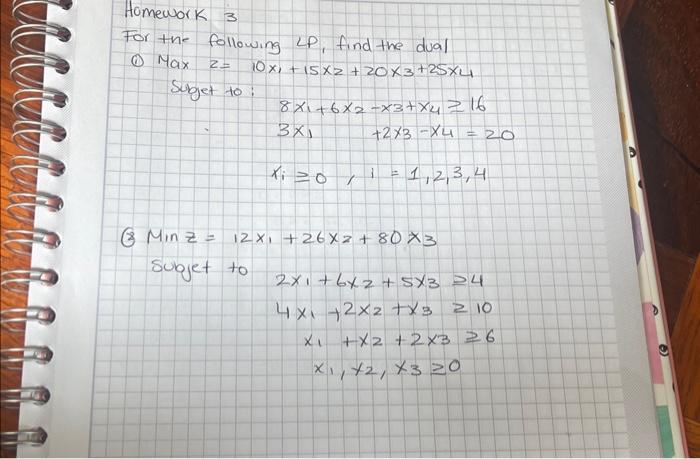 Homework 3
For the following LP, find the dual
① Max z = 10x₁ + 15x2 + 20x3 + 25x4
Subjet to :
8x₁ + 6x2 - x3 + x4 ≥ 16
3x₁ + 2x3 - x4 = 20
xi ≥ 0 , i = 1,2,3,4
② Min z = 12x₁ + 26x2 + 80x3
Subjet to
2x₁ + 6x2 + 5x3 ≥ 4
4x₁ + 2x2 + x3 ≥ 10
x₁ + x2 + 2x3 ≥ 6
x₁, x2, x3 ≥ 0